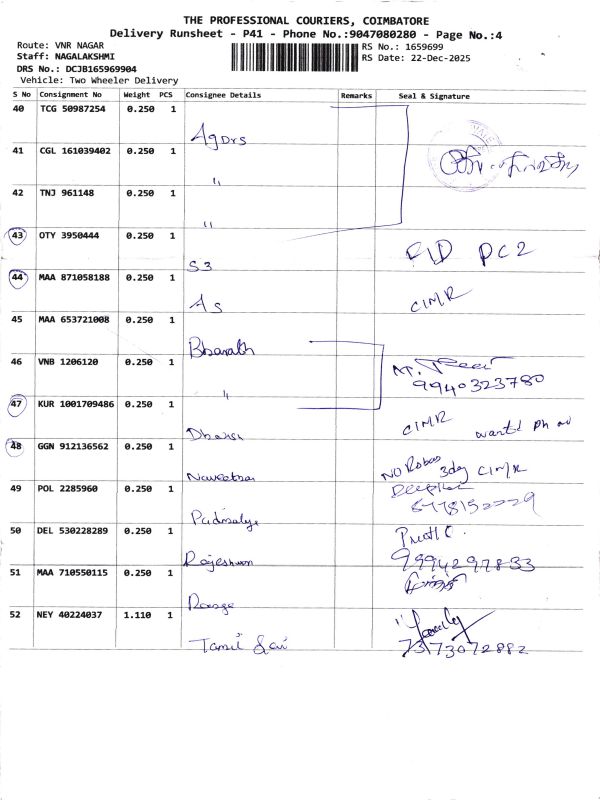 THE PROFESSIONAL COURIERS, COIMBATORE
Delivery Runsheet - P41 - Phone No.:9047080280 - Page No.:4
Route: VNR NAGAR
Staff: NAGALAKSHMI
DRS No.: DCJB165969904
Vehicle: Two Wheeler Delivery
RS No.: 1659699
RS Date: 22-Dec-2025
S No Consignment No Weight PCS Consignee Details Remarks Seal & Signature
40 TCG 50987254 0.250 1
Agors
41 CGL 161039402 0.250 1
"
42 TNJ 961148 0.250 1
"
43 OTY 3950444 0.250 1
S3 PC2
44 MAA 871058188 0.250 1
AS
45 MAA 653721008 0.250 1
Bharath
46 VNB 1206120 0.250 1
" 9940323780
47 KUR 1001709486 0.250 1
wanted ph no
48 GGN 912136562 0.250 1
49 POL 2285960 0.250 1
50 DEL 530228289 0.250 1
Rajeshwari 9994297833
51 MAA 710550115 0.250 1
52 NEY 40224037 1.110 1
Tamil Sai 7373072882